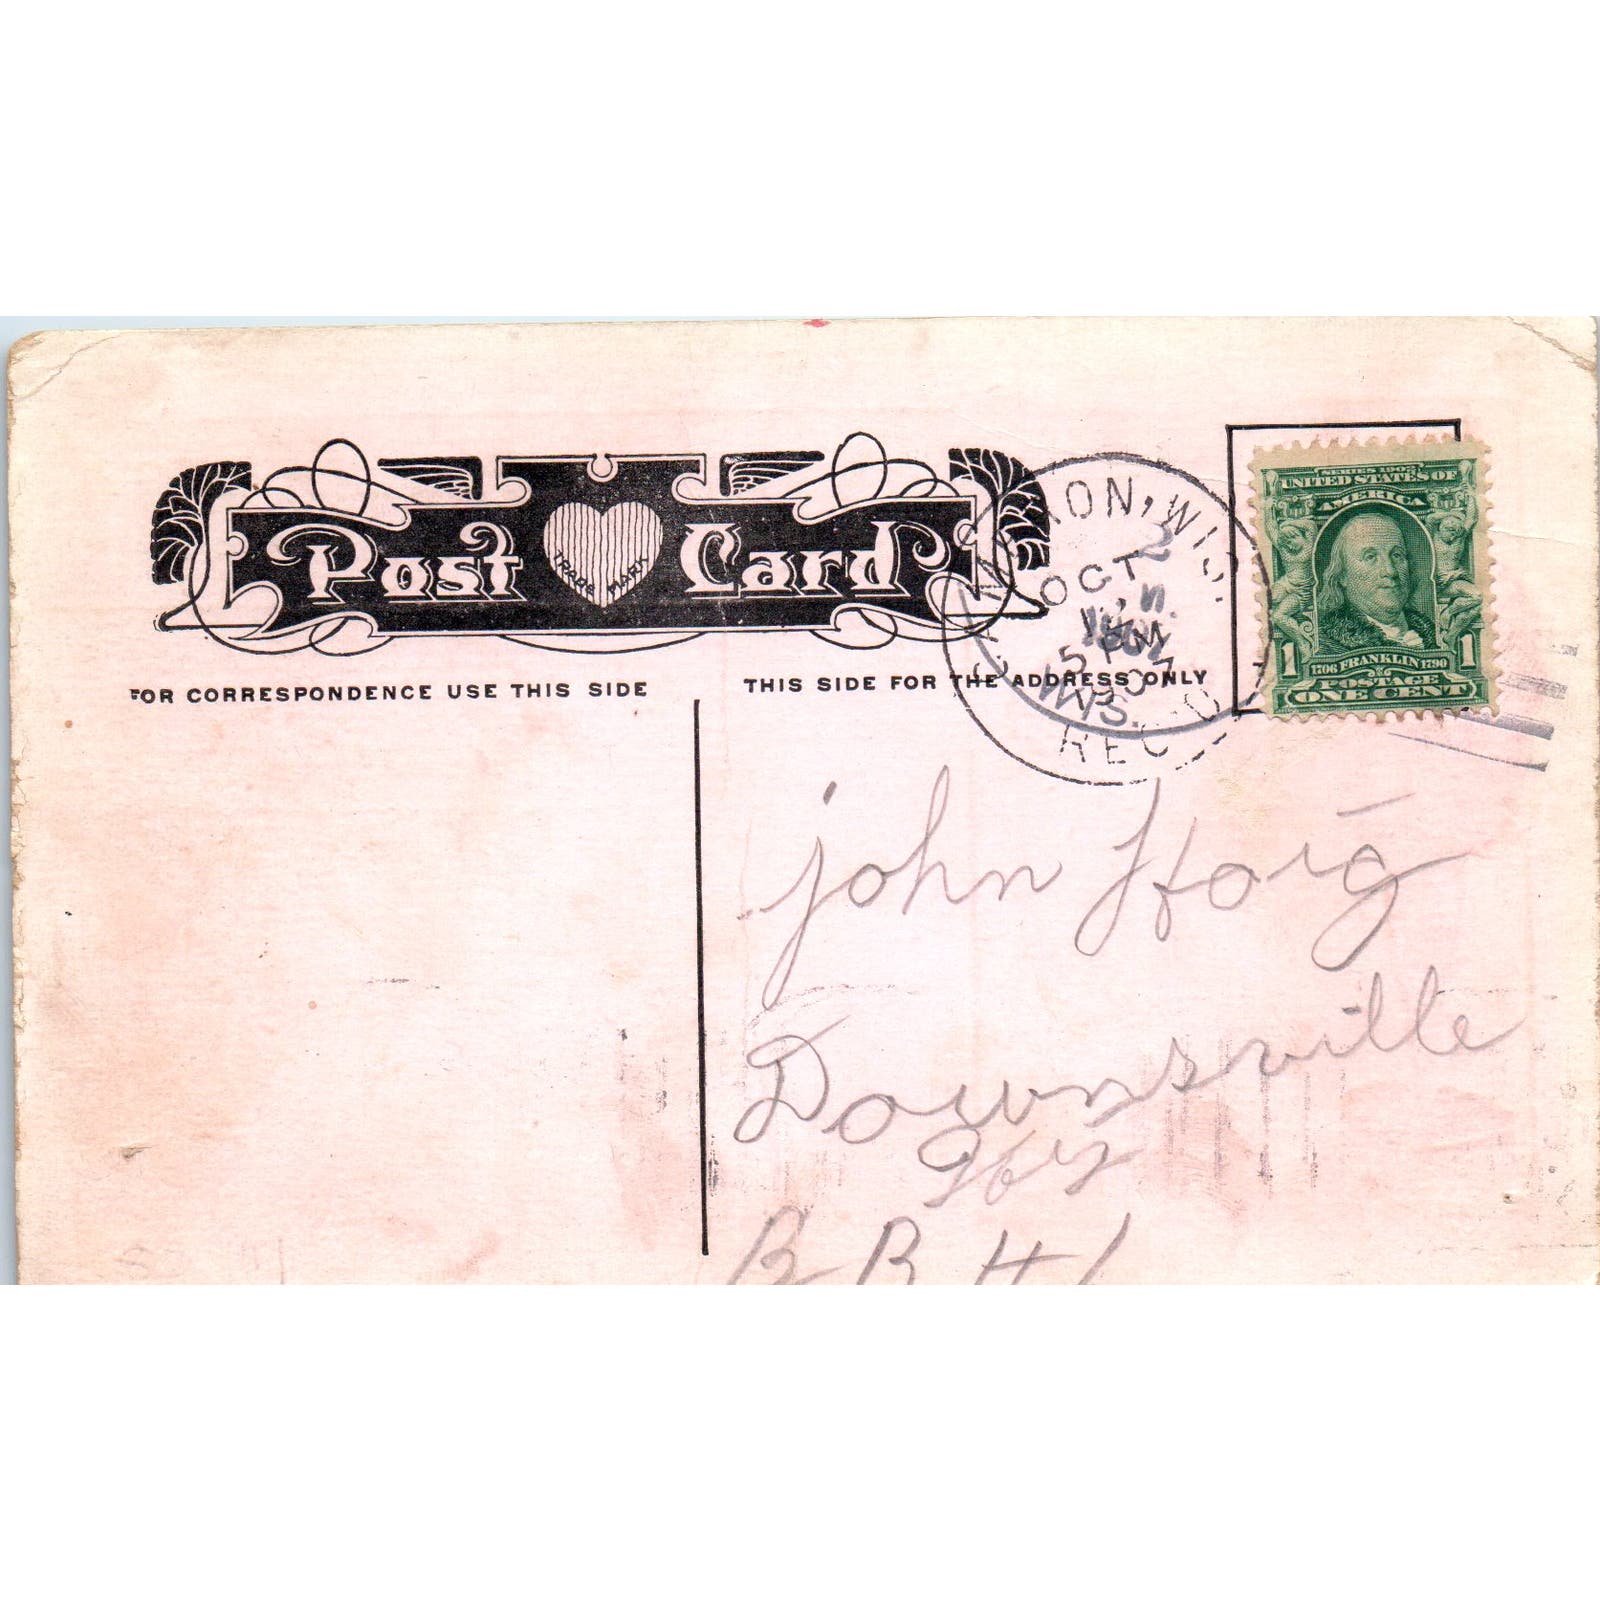 Post Card
TRADE MARK
FOR CORRESPONDENCE USE THIS SIDE
THIS SIDE FOR THE ADDRESS ONLY
OCT
5 PM
REC'D
SERIES 1902
UNITED STATES OF
AMERICA
1 1
1706 FRANKLIN 1790
POSTAGE
ONE CENT
John Hoig
Downsville